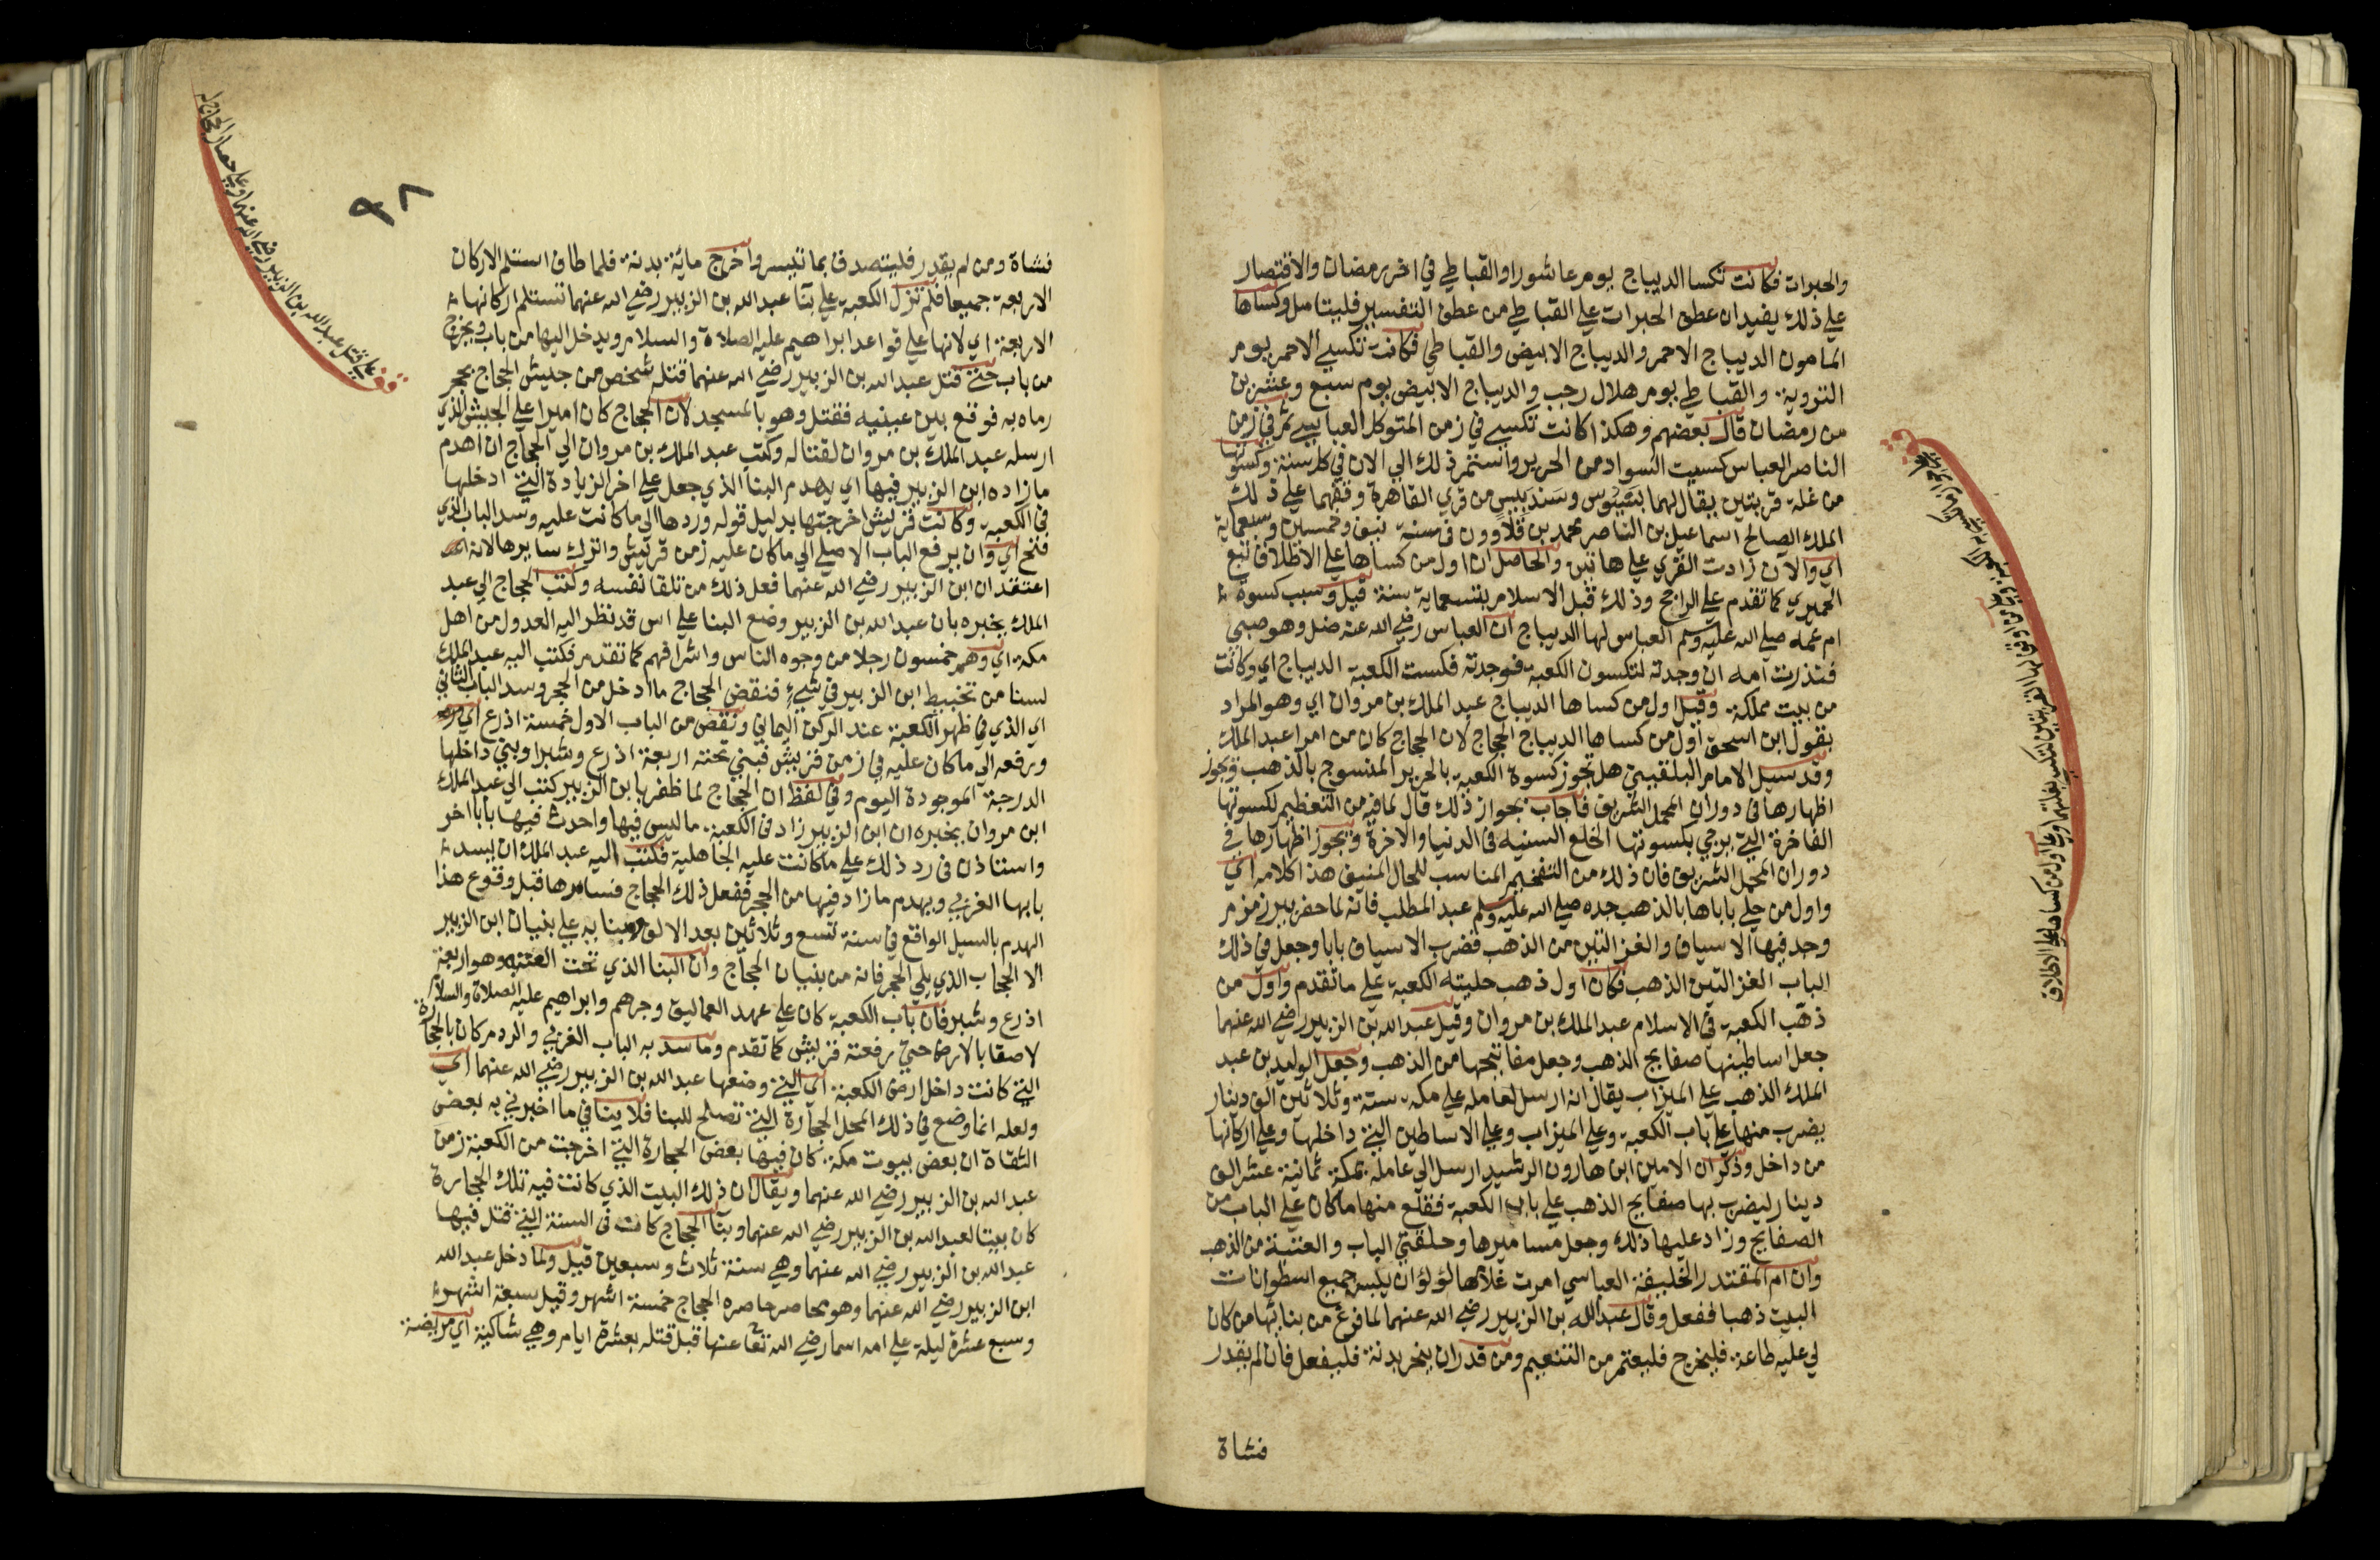 والحبرات فكانت تكسا الديباج يوم عاشورا والقباطي في اخر رمضان والاقتصار
على ذلك يفيد ان عطف الحبرات على القباطي من عطف التفسير فليتامل وكساها
المامون الديباج الاحمر والديباج الابيض والقباطي فكانت تكسى الاحمر يوم
التروية والقباطي يوم هلال رجب والديباج الابيض يوم سبع وعشرين
من رمضان قال بعضهم وهكذا كانت تكسى في زمن المتوكل العباسي ثم في زمن
الناصر العباسي كسيت السواد من الحرير واستمر ذلك الى الان في كل سنة وكسوتها
من غلة قريتين يقال لهما بيسوس وسندبيس من قرى القاهرة وقفهما على ذلك
الملك الصالح اسماعيل بن الناصر محمد بن قلاوون في سنة نيف وخمسين وسبعماية
اي والان زادت القرى على هاتين والحاصل ان اول من كساها على الاطلاق تبع
الحميري كما تقدم على الراجح وذلك قبل الاسلام بتسعماية سنة قيل وسبب كسوة
ام عمه صلى الله عليه وسلم العباس لها الديباج ان العباس رضي الله عنه ضل وهو صبي
فنذرت امه ان وجدته لتكسون الكعبة فوجدته فكست الكعبة الديباج اي وكانت
من بيت مملكة وقيل اول من كساها الديباج عبد الملك بن مروان اي وهو المراد
بقول ابن اسحق اول من كساها الديباج الحجاج لان الحجاج كان من امرا عبد الملك
وقد سيل الامام البلقيني هل تجوز كسوة الكعبة بالحرير المنسوج بالذهب وتجوز
اظهارها في دوران المحمل الشريف فاجاب بجواز ذلك قال لما فيه من التعظيم لكسوتها
الفاخرة التي يرجى بكسوتها الخلع السنيه في الدنيا والاخرة ويجوز اظهارها في
دوران المحمل الشريف فان ذلك من التفخيم المناسب للحال المنيف هذا كلامه اي
واول من حلى باباها بالذهب جده صلى الله عليه وسلم عبد المطلب فانه لما حفر بير زمزم
وجد فيها الاسياف والغزالتين من الذهب فضرب الاسياف بابا وجعل في ذلك
الباب الغزالتين الذهب فكان اول ذهب حليته الكعبة على ما تقدم واول من
ذهب الكعبة في الاسلام عبد الملك بن مروان وقيل عبد الله بن الزبير رضي الله عنهما
جعل اساطينها صفايح الذهب وجعل مفاتيحها من الذهب وجعل الوليد بن عبد
الملك الذهب على الميزاب يقال انه ارسل لعامله على مكة ستة وثلاثين الف دينار
يضرب منها على باب الكعبة وعلى الميزاب وعلى الاساطين التي داخلها وعلى اركانها
من داخل وذكر ان الامين ابن هارون الرشيد ارسل الى عامله بمكة ثمانية عشر الف
دينار ليضرب بها صفايح الذهب على باب الكعبة فقلع منها ما كان على الباب من
الصفايح وزاد عليها ذلك وجعل مساميرها وحلقتي الباب والعتبة من الذهب
وان ام المقتدر الخليفة العباسي امرت غلامها لولو ان يلبس جميع اسطوانات
البيت ذهبا ففعل وقال عبد الله بن الزبير رضي الله عنهما لما فرغ من بنائها من كان
لي عليه طاعة فليخرج فليعتمر من التنعيم ومن قدر ان ينحر بدنة فليفعل فان لم يقدر
فشاة
قف
اول من كساها على الاطلاق
٩٨
فشاة ومن لم يقدر فليتصدق بما تيسر واخرج ماية بدنة فلما طاف استلم الاركان
الاربعة جميعا فلم تزل الكعبة على بنآ عبد الله بن الزبير رضي الله عنهما تستلم اركانها
الاربعة اي لانها على قواعد ابراهيم عليه الصلاة والسلام ويدخل اليها من باب ويخرج
من باب حتى قتل عبد الله بن الزبير رضي الله عنهما قتله شخص من جيش الحجاج بحجر
رماه به فوقع بين عينيه فقتل وهو بالمسجد لان الحجاج كان اميرا على الجيش الذي
ارسله عبد الملك بن مروان لقتاله وكتب عبد الملك بن مروان الى الحجاج ان اهدم
ما زاده ابن الزبير فيها اي يهدم البنا الذي جعل على اخر الزيادة التي ادخلها
في الكعبة وكانت قريش اخرجتها بدليل قوله وردها الى ما كانت عليه وسد الباب الذي
فتح اي وان يرفع الباب الاصلي الى ما كان عليه زمن قريش واترك سايرها لانه
اعتقد ان ابن الزبير رضي الله عنهما فعل ذلك من تلقا نفسه وكتب الحجاج الى عبد
الملك يخبره بان عبد الله بن الزبير وضع البنا على اس قد نظر اليه العدول من اهل
مكة اي وهم خمسون رجلا من وجوه الناس واشرافهم كما تقدم فكتب اليه عبد الملك
لسنا من تخبيط ابن الزبير في شيء فنقض الحجاج ما ادخل من الحجر وسد الباب الثاني
اي الذي في ظهر الكعبة عند الركن اليماني ونقض من الباب الاول خمسة اذرع اي
ورفعه الى ما كان عليه في زمن قريش فبنى تحته اربعة اذرع وشبرا وبنى داخلها
الدرجة الموجودة اليوم وفي لفظ ان الحجاج لما ظفر بابن الزبير كتب الى عبد الملك
ابن مروان يخبره ان ابن الزبير زاد في الكعبة ما ليس فيها واحدث فيها بابا اخر
واستاذن في رد ذلك على ما كانت عليه الجاهلية فكتب اليه عبد الملك ان يسد
بابها الغربي ويهدم ما زاد فيها من الحجر ففعل ذلك الحجاج فسايرها قبل وقوع هذا
الهدم بالسيل الواقع في سنة تسع وثلاثين بعد الالف وبنايه على بنيان ابن الزبير
الا الحجاب الذي يلي الحجر فانه من بنيان الحجاج وان البنا الذي تحت العتبه وهو اربعة
اذرع وشبر فان باب الكعبة كان على عهد العماليق وجرهم وابراهيم عليه الصلاة والسلام
لاصقا بالارض حتى رفعته قريش كما تقدم وما سد به الباب الغربي والردم كان بالحجارة
التي كانت داخل ارض الكعبة اي التي وضعها عبد الله بن الزبير رضي الله عنهما اي
ولعله انما وضع في ذلك المحل الحجارة التي تصلح للبنا فلا ينافي ما اخبرني به بعض
الثقاة ان بعض بيوت مكة كان فيها بعض الحجارة التي اخرجت من الكعبة زمن
عبد الله بن الزبير رضي الله عنهما ويقال ان ذلك البيت الذي كانت فيه تلك الحجارة
كان بيتا لعبد الله بن الزبير رضي الله عنهما وبنآ الحجاج كانت في السنة التي قتل فيها
عبد الله بن الزبير رضي الله عنهما وهي سنة ثلاث وسبعين قيل ولما دخل عبد الله
ابن الزبير رضي الله عنهما وهو محاصر حاصره الحجاج خمسة اشهر وقيل سبعة اشهر
وسبع عشرة ليلة على امه اسما رضي الله تعا عنها قبل قتله بعشرة ايام وهي شاكية اي مريضة
قف
على قتل عبد الله بن الزبير رضي الله عنهما وعلى حصار الحجاج له